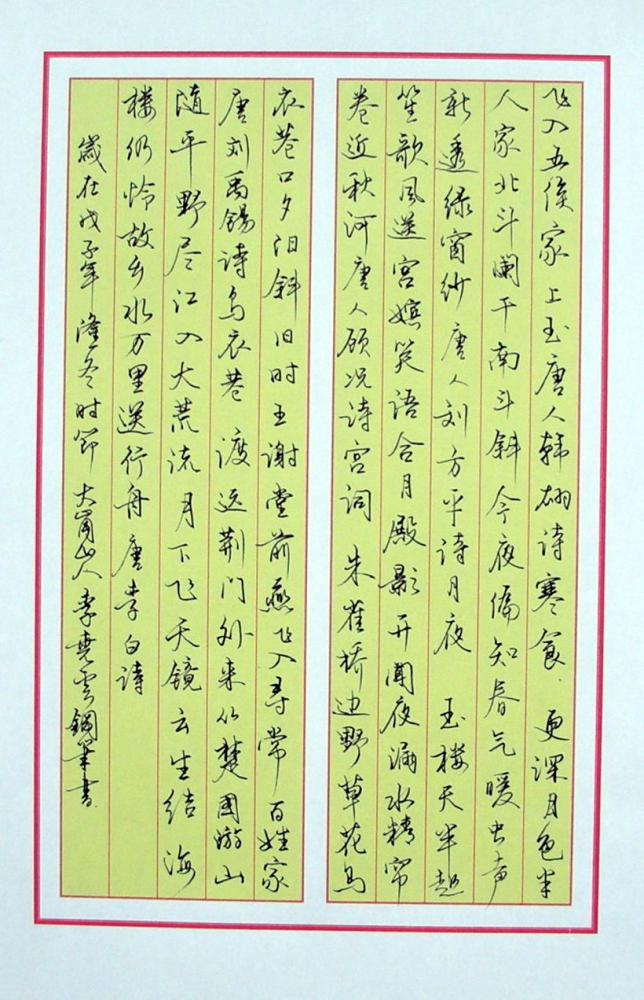 飞入五侯家上玉唐人韩翃诗寒食更深月色半
人家北斗阑干南斗斜今夜偏知春气暖虫声
新透绿窗纱唐人刘方平诗月夜玉楼天半起
笙歌风送宫嫔笑语合月殿影开闻夜漏水精帘
卷近秋河唐人顾况诗宫词朱雀桥边野草花乌
衣巷口夕阳斜旧时王谢堂前燕飞入寻常百姓家
唐刘禹锡诗乌衣巷渡远荆门外来从楚国游山
随平野尽江入大荒流月下飞天镜云生结海
楼仍怜故乡水万里送行舟唐李白诗
岁在戊子年隆冬时节大岗山人李尧云钢笔书